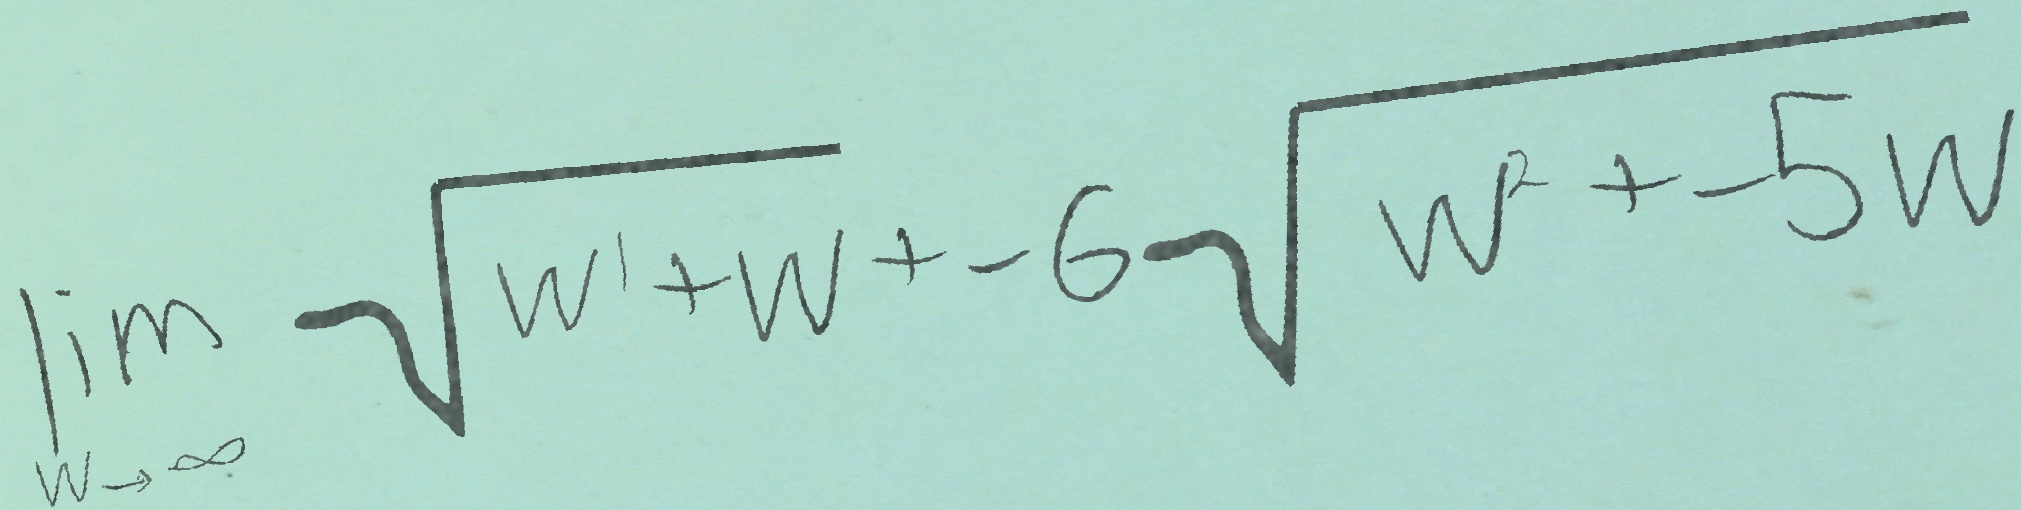 \lim_{w \to \infty} \sqrt{w^1 + w} + -6\sqrt{w^2 + -5w}